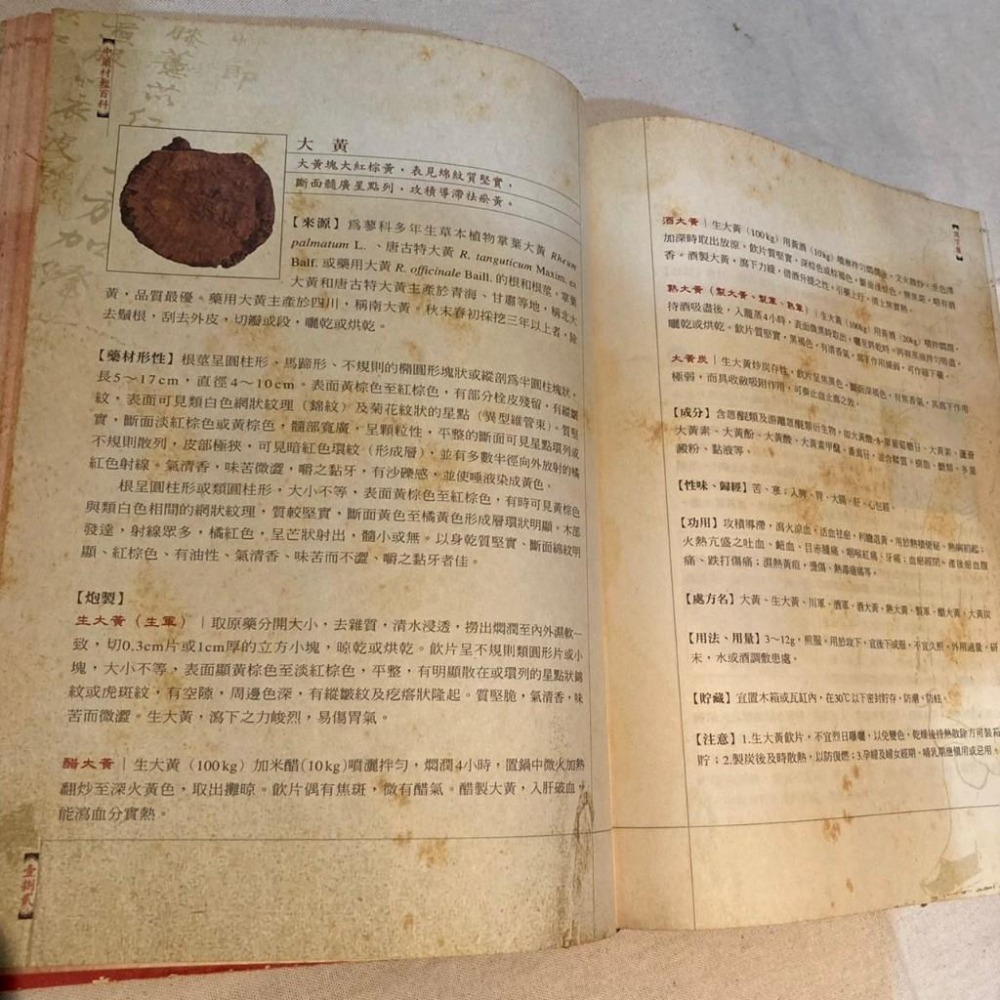 大黃
大黃塊大紅棕黃，表見綿紋質堅實，
斷面髓廣星點列，攻積導滯祛瘀黃。
【來源】為蓼科多年生草本植物掌葉大黃 Rheum
palmatum L.、唐古特大黃 R. tanguticum Maxim. ex
Balf. 或藥用大黃 R. officinale Baill. 的根和根莖，掌葉
大黃和唐古特大黃主產於青海、甘肅等地，稱北大
黃，品質最優。藥用大黃主產於四川，稱南大黃。秋末春初採挖三年以上者，除
去鬚根，刮去外皮，切瓣或段，曬乾或烘乾。
【藥材形性】根莖呈圓柱形、馬蹄形、不規則的橢圓形塊狀或縱剖為半圓柱塊狀，
長5～17cm，直徑4～10cm。表面黃棕色至紅棕色，有部分栓皮殘留，有縱皺
紋，表面可見類白色網狀紋理（錦紋）及菊花紋狀的星點（異型維管束）。質堅
實，斷面淡紅棕色或黃棕色，髓部寬廣，呈顆粒性，平整的斷面可見星點環列或
不規則散列，皮部極狹，可見暗紅色環紋（形成層），並有多數半徑向外放射的橘
紅色射線。氣清香，味苦微澀，嚼之黏牙，有沙礫感，並使唾液染成黃色。
根呈圓柱形或類圓柱形，大小不等，表面黃棕色至紅棕色，有時可見黃棕色
與類白色相間的網狀紋理，質較堅實，斷面黃色至橘黃色形成層環狀明顯。木部
發達，射線眾多，橘紅色，呈芒狀射出，髓小或無。以身乾質堅實、斷面綿紋明
顯、紅棕色、有油性、氣清香、味苦而不澀、嚼之黏牙者佳。
【炮製】
生大黃（生軍）｜取原藥分開大小，去雜質，清水浸透，撈出燜潤至內外濕軟一
致，切0.3cm片或1cm厚的立方小塊，晾乾或烘乾。飲片呈不規則類圓形片或小
塊，大小不等，表面顯黃棕色至淡紅棕色，平整，有明顯散在或環列的星點狀錦
紋或虎斑紋，有空隙，周邊色深，有縱皺紋及疙瘩狀隆起。質堅脆，氣清香，味
苦而微澀。生大黃，瀉下之力峻烈，易傷胃氣。
醋大黃｜生大黃（100kg）加米醋(10kg)噴灑拌勻，燜潤4小時，置鍋中微火加熱
翻炒至深火黃色，取出攤晾。飲片偶有焦斑，微有醋氣。醋製大黃，入肝破血，
能瀉血分實熱。
壹捌貳
酒大黃｜生大黃（100kg）用黃酒（10kg）噴灑拌勻燜潤，文火微炒，至色澤
加深時取出放涼。飲片質堅實，深棕色或棕褐色，斷面淺棕色，無焦斑，略有酒
香。酒製大黃，瀉下力緩，借酒升提之性，引藥上行，清上焦實熱。
熟大黃（製大黃、製軍、熟軍）｜生大黃（100kg）用黃酒（20kg）噴拌燜潤，
待酒吸盡後，入籠蒸4小時，
曬乾或烘乾。飲片質堅實，黑褐色，有清香氣，瀉下作用緩弱，可作緩下藥。
大黃炭｜生大黃炒炭存性，飲片呈焦黑色，斷面深褐色，有焦香氣，其瀉下作用
極弱，而具收斂吸附作用，可奏止血止瀉之效。
【成分】含蒽醌類及游離蒽醌類衍生物，
大黃素、大黃酚、大黃酸、大黃素甲醚、番瀉苷，並含鞣質、樹脂、糖類、多量
澱粉、黏液等。
【性味、歸經】苦，寒；入脾、胃、大腸、肝、心包經。
【功用】攻積導滯，瀉火涼血，活血祛瘀，利膽退黃。用於熱積便秘、熱痢初起；
火熱亢盛之吐血、衄血、目赤腫痛、咽喉紅痛、牙痛；血瘀經閉、產後瘀血腹
痛、跌打傷痛；濕熱黃疸，燙傷、熱毒瘡瘍等。
【處方名】大黃、生大黃、川軍、酒軍、酒大黃、熟大黃、製軍、醋大黃、大黃炭
【用法、用量】3～12g，煎服。用於攻下，宜後下或服，不宜久煎。外用適量，研
末，水或酒調敷患處。
【貯藏】宜置木箱或瓦缸內，在30℃以下密封貯存。防潮，防蛀。
【注意】1.生大黃飲片，不宜烈日曝曬，以免變色，乾燥後待熱散除方可裝箱
貯；2.製炭後及時散熱，以防復燃；3.孕婦及婦女經期、哺乳期應慎用或忌用。